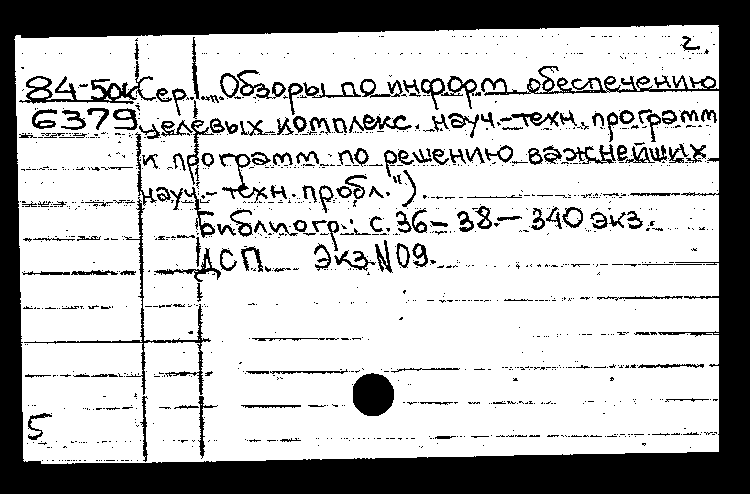 2.
84-50к Сер. „Обзоры по информ. обеспечению
6379 целевых комплекс. науч.-техн. программ
и программ по решению важнейших
науч.-техн. пробл.").
Библиогр.: с. 36-38.— 340 экз.
ДСП Экз.N 09.
5